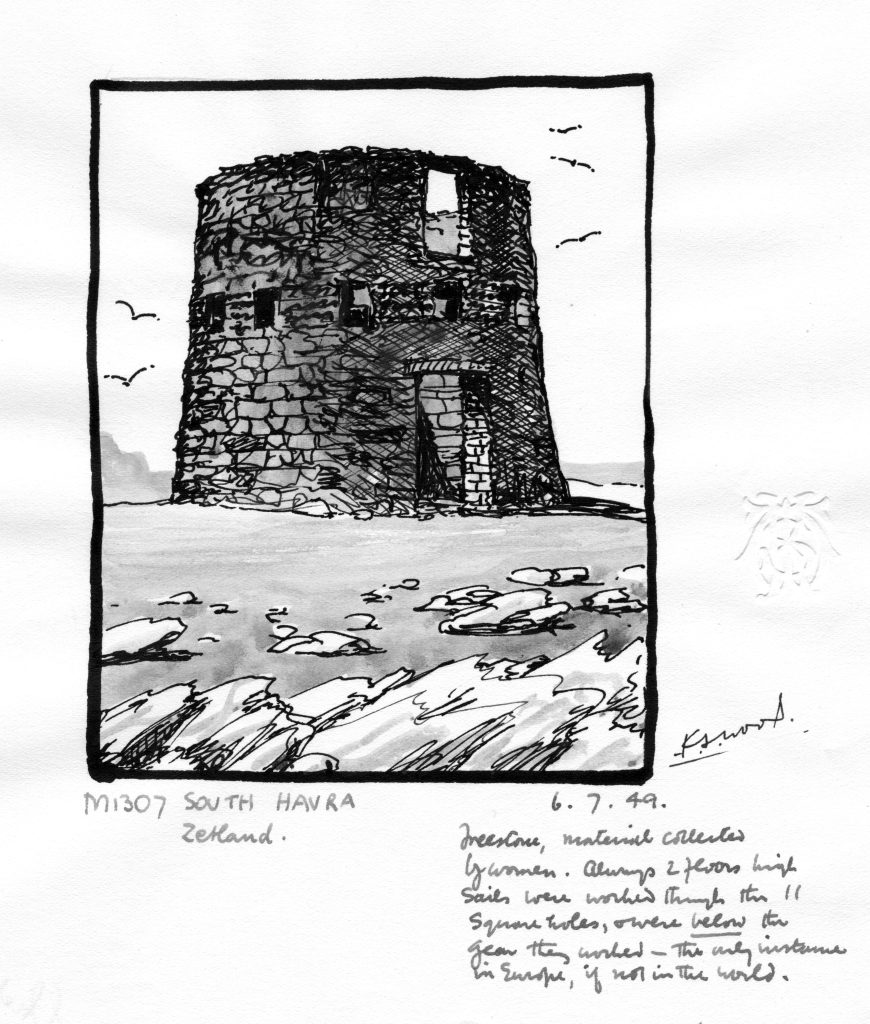 K.S. Wood.
M1307 SOUTH HAVRA
Zetland.
6. 7. 49.
Freestone, material collected
by women. Always 2 floors high
Sails were worked through the 11
Square holes, & were below the
gear they worked – the only instance
in Europe, if not in the world.